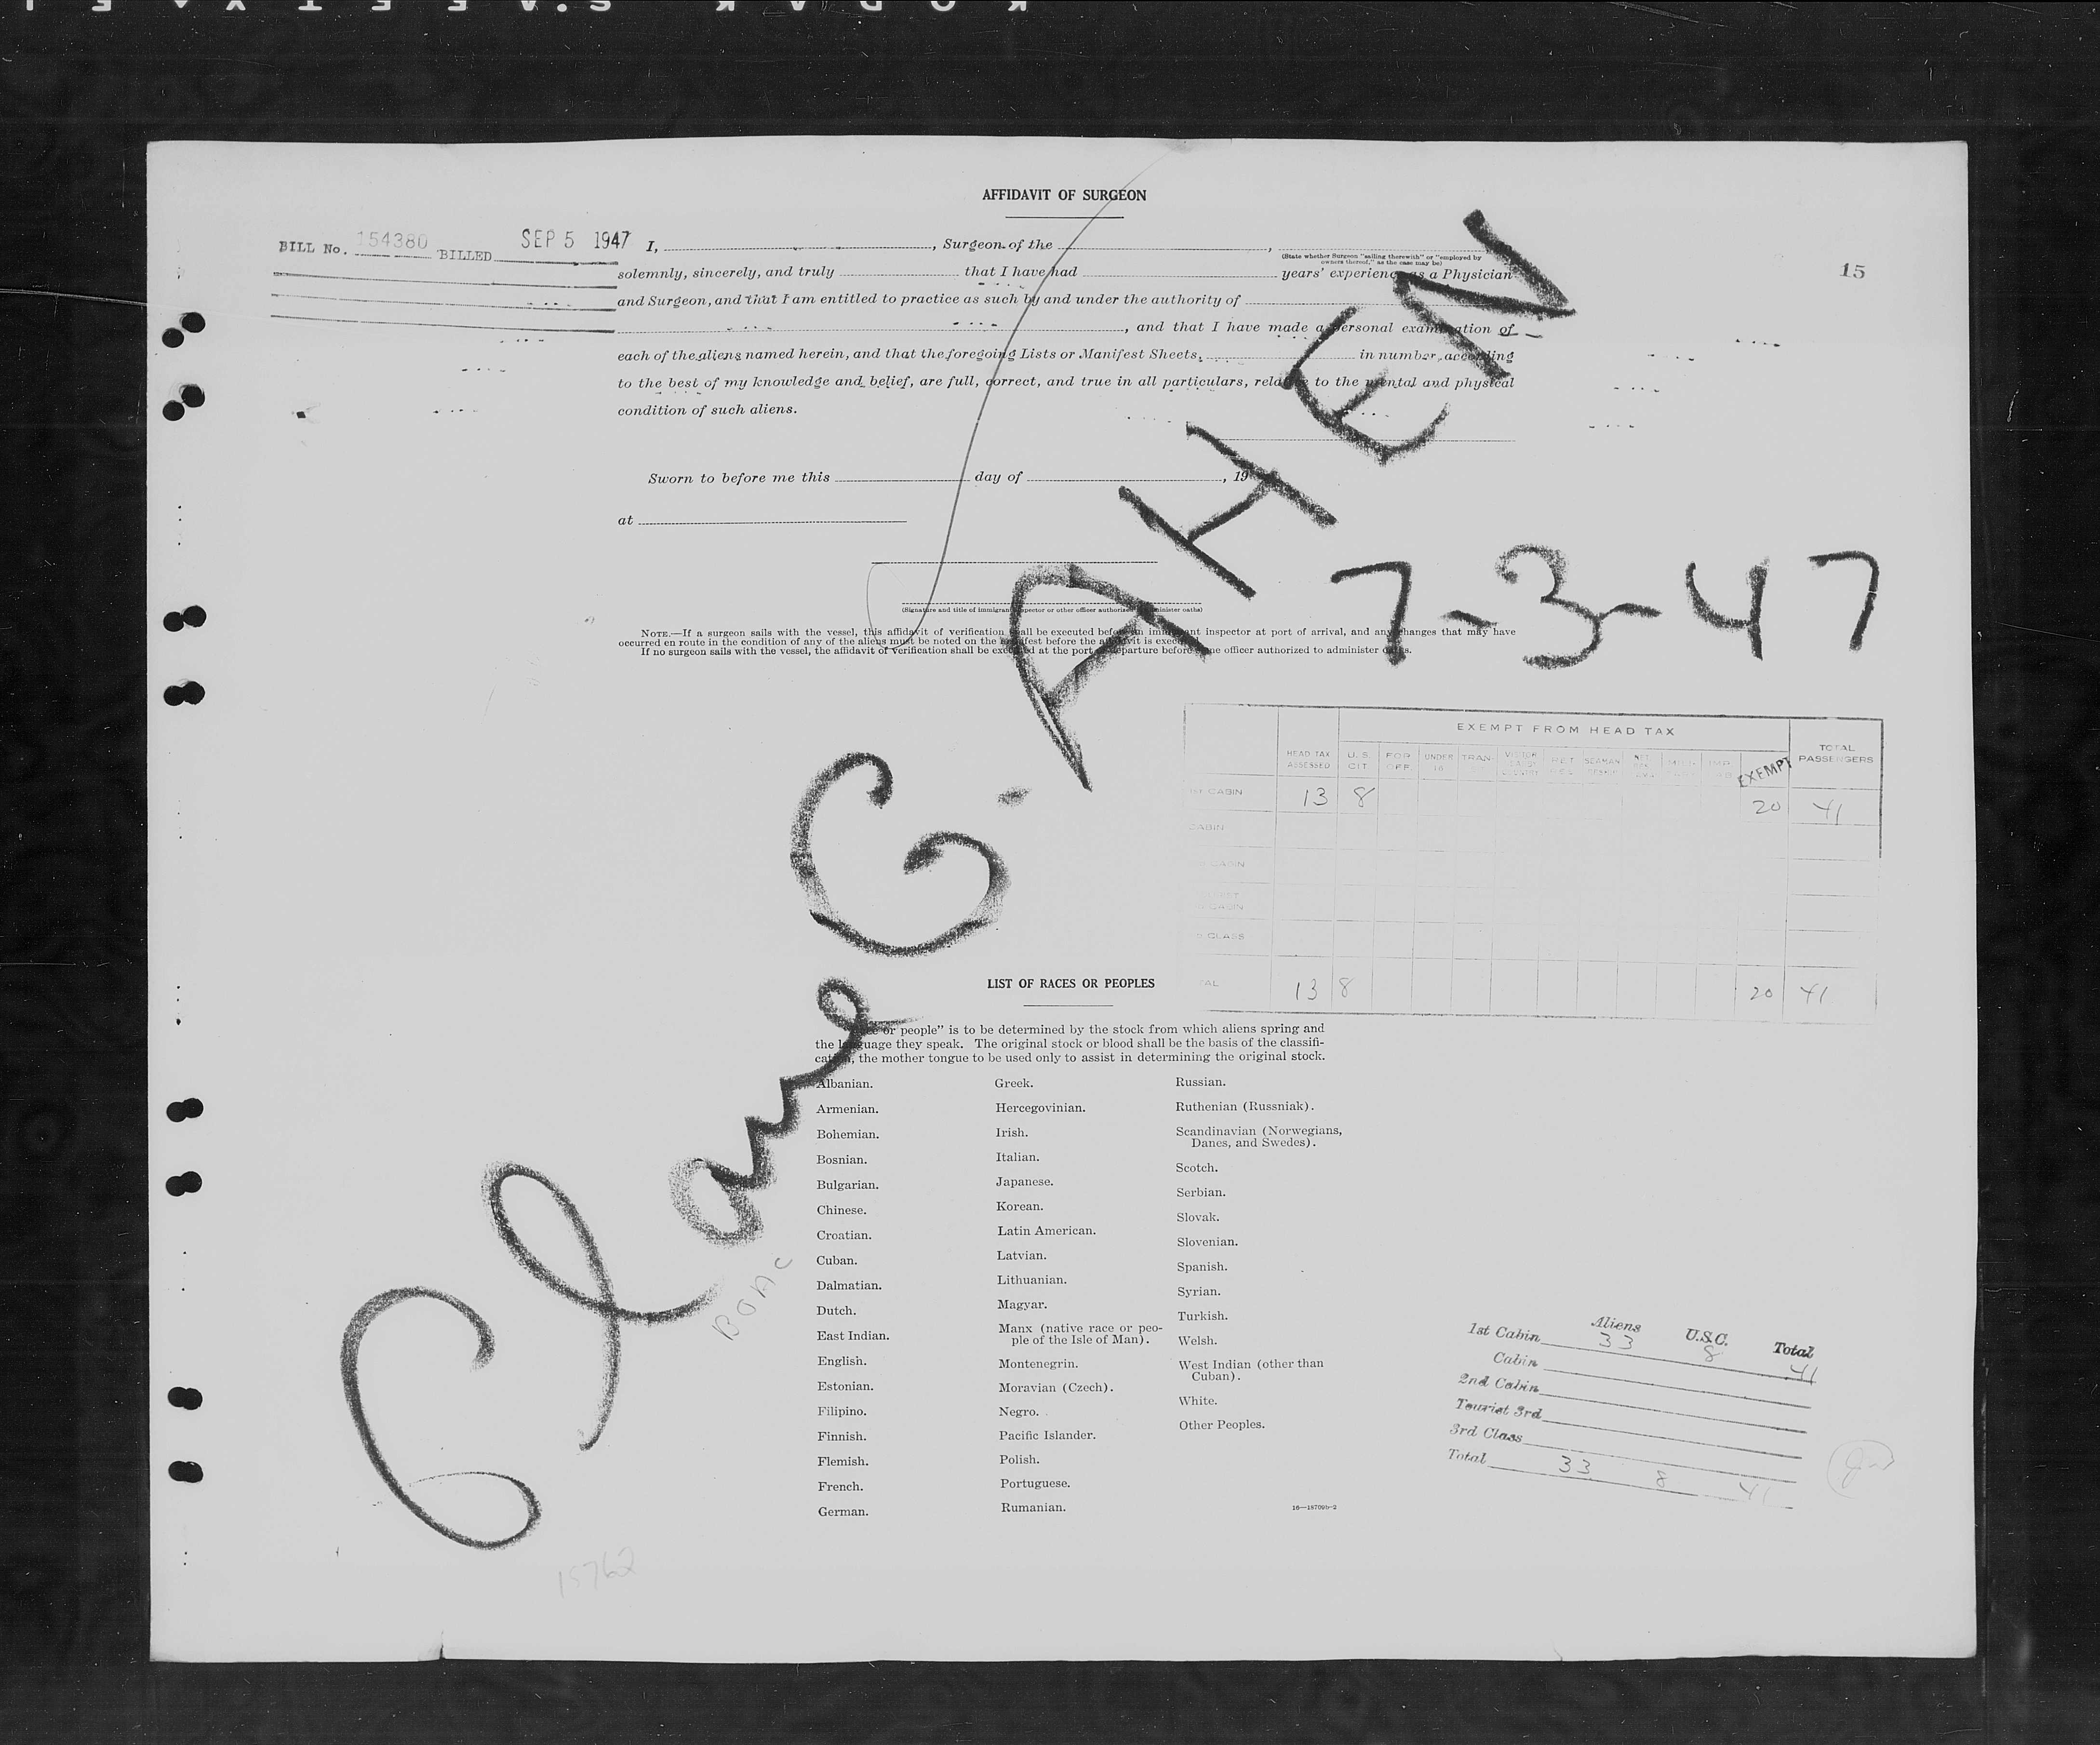 AFFIDAVIT OF SURGEON
BILL No. 154380 BILLED SEP 5 1947
15
I, , Surgeon of the ,
(State whether Surgeon "sailing therewith" or "employed by
owners thereof," as the case may be)
solemnly, sincerely, and truly that I have had years' experience as a Physician
and Surgeon, and that I am entitled to practice as such by and under the authority of
, and that I have made a personal examination of
each of the aliens named herein, and that the foregoing Lists or Manifest Sheets, in number, according
to the best of my knowledge and belief, are full, correct, and true in all particulars, relative to the mental and physical
condition of such aliens.
Sworn to before me this day of , 19
at
(Signature and title of immigrant inspector or other officer authorized to administer oaths)
NOTE.—If a surgeon sails with the vessel, this affidavit of verification shall be executed before an immigrant inspector at port of arrival, and any changes that may have
occurred en route in the condition of any of the aliens must be noted on the manifest before the affidavit is executed.
If no surgeon sails with the vessel, the affidavit of verification shall be executed at the port of departure before some officer authorized to administer oaths.
Plane G-AHEN
7-3-47
BOAC
EXEMPT FROM HEAD TAX
HEAD TAX ASSESSED U.S. CIT FOR OFF UNDER 16 TRAN RET SEAMAN EXEMPT TOTAL PASSENGERS
CABIN 13 8 20 41
CABIN
CABIN
CABIN
CLASS
TAL 13 8 20 41
LIST OF RACES OR PEOPLES
or people" is to be determined by the stock from which aliens spring and
the language they speak. The original stock or blood shall be the basis of the classifi-
cation, the mother tongue to be used only to assist in determining the original stock.
Albanian.
Armenian.
Bohemian.
Bosnian.
Bulgarian.
Chinese.
Croatian.
Cuban.
Dalmatian.
Dutch.
East Indian.
English.
Estonian.
Filipino.
Finnish.
Flemish.
French.
German.
Greek.
Hercegovinian.
Irish.
Italian.
Japanese.
Korean.
Latin American.
Latvian.
Lithuanian.
Magyar.
Manx (native race or peo-
ple of the Isle of Man).
Montenegrin.
Moravian (Czech).
Negro.
Pacific Islander.
Polish.
Portuguese.
Rumanian.
Russian.
Ruthenian (Russniak).
Scandinavian (Norwegians,
Danes, and Swedes).
Scotch.
Serbian.
Slovak.
Slovenian.
Spanish.
Syrian.
Turkish.
Welsh.
West Indian (other than
Cuban).
White.
Other Peoples.
16—18709b-2
Aliens U.S.C. Total
1st Cabin 33 8 41
Cabin
2nd Cabin
Tourist 3rd
3rd Class
Total 33 8 41
15762